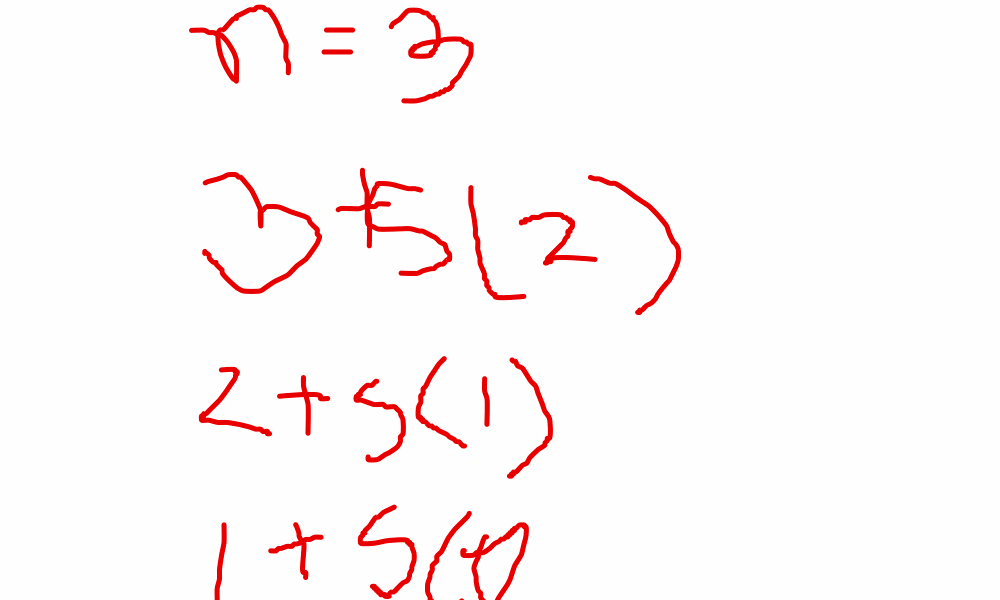 n = 3
3 + 5(2)
2 + 5(1)
1 + 5(